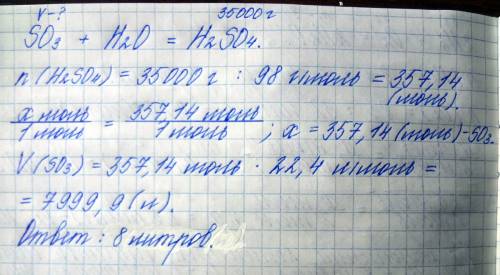 V-? 35000 г
SO3 + H2O = H2SO4.
n(H2SO4) = 35000 г : 98 г/моль = 357,14 (моль).
x моль / 1 моль = 357,14 моль / 1 моль ; x = 357,14 (моль) - SO3.
V(SO3) = 357,14 моль · 22,4 л/моль =
= 7999,9 (л).
Ответ: 8 литров.